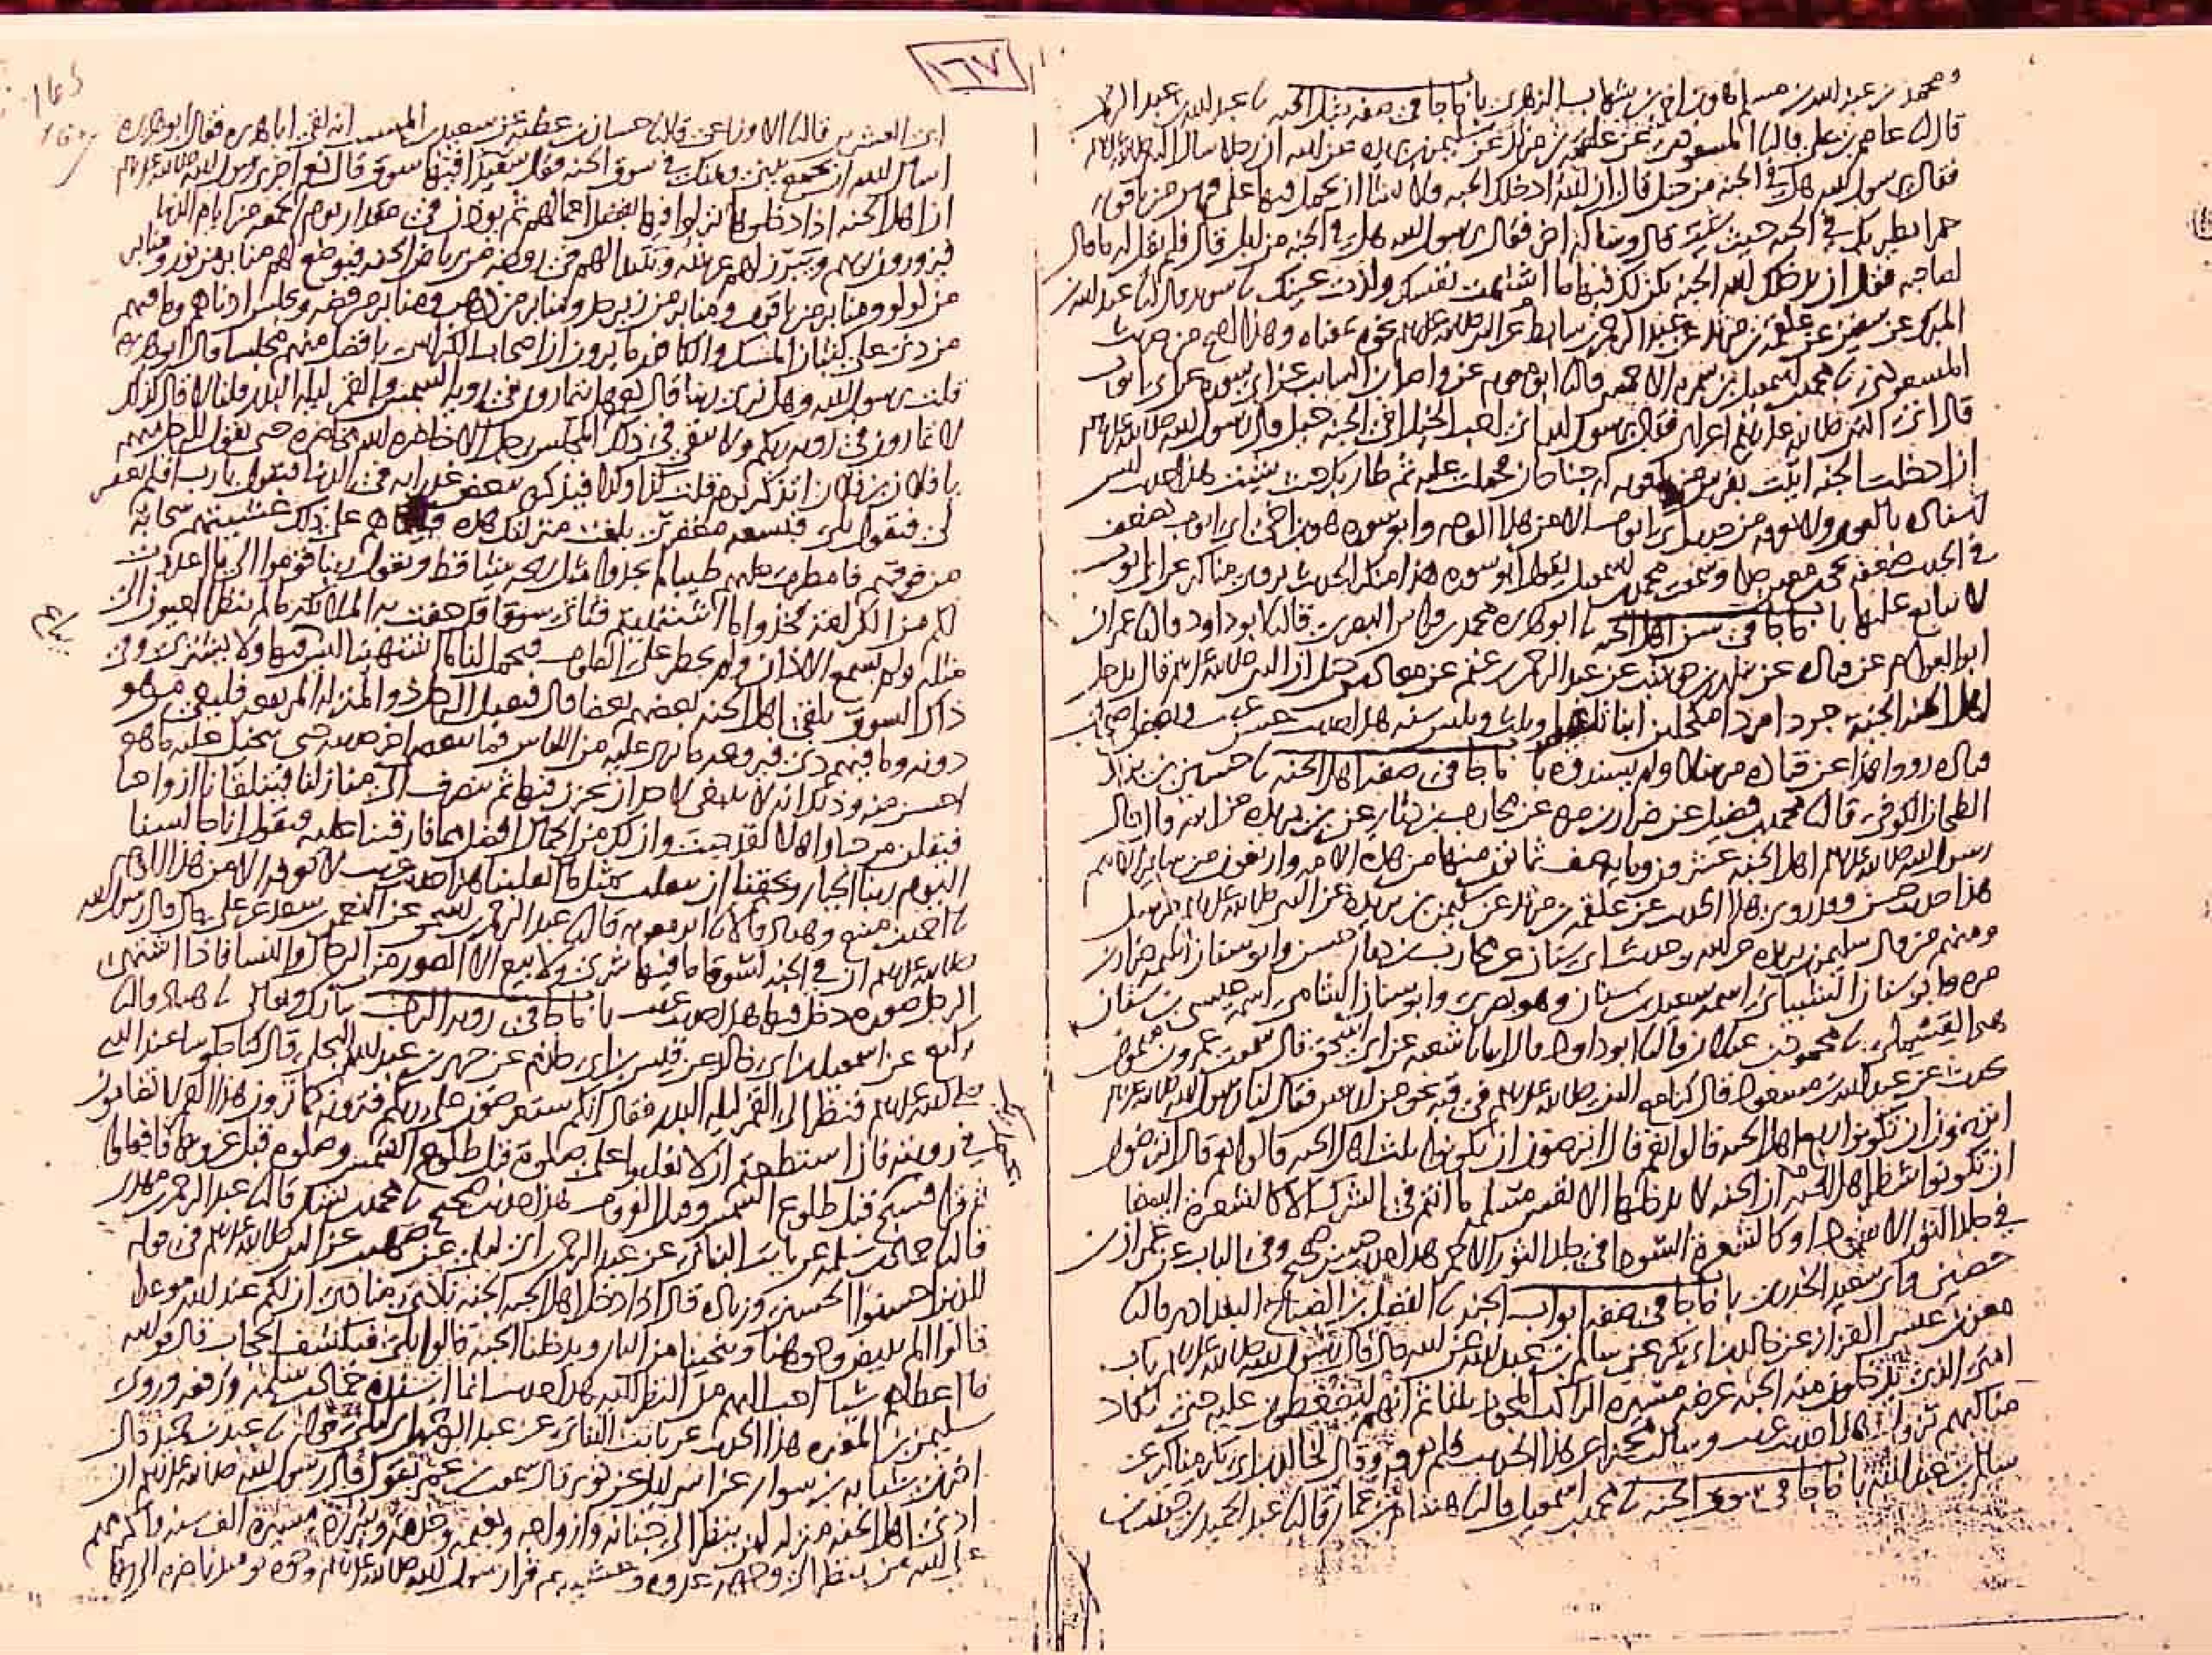 ١٦٧
ومحمد بن عبد الله بن مسلم هو ابن اخي بن شهاب الزهري باب ما جا في صفه خيل الجنه نا عبد الله بن عبد الرحمن
قال نا عاصم بن علي قال نا المسعودي عن علقمه بن مرثد عن سليمن بن بريده عن ابيه ان رجلا سال النبي صلى الله عليه وسلم
فقال يا رسول الله هل في الجنه من خيل قال ان الله ادخلك الجنه فلا تشا ان تحمل فيها على فرس من ياقوته
حمرا يطير بك في الجنه حيث شئت قال وساله اخر فقال يا رسول الله هل في الجنه من ابل قال فلم يقل له ما قال
لصاحبه فقال ان يدخلك الله الجنه يكن لك فيها ما اشتهت نفسك ولذت عينك نا سويد قال نا عبد الله بن
المبرك عن سفين عن علقمه بن مرثد عن عبد الرحمن بن سابط عن النبي صلى الله عليه وسلم نحوه بمعناه وهذا اصح من حديث
المسعودي نا محمد بن اسمعيل بن سمره الاحمسي قال نا ابو معويه عن واصل بن السايب عن ابي سوره عن ابي ايوب
قال اتى النبي صلى الله عليه وسلم اعرابي فقال يا رسول الله اني احب الخيل افي الجنه خيل قال رسول الله صلى الله عليه وسلم
ان ادخلت الجنه اتيت بفرس من ياقوته له جناحان فحملت عليه ثم طار بك حيث شيت هذا حديث ليس
اسناده بالقوي ولا نعرفه من حديث ابي ايوب الا من هذا الوجه وابو سوره هو ابن اخي ابي ايوب يضعف
في الحديث ضعفه يحيى بن معين جدا وسمعت محمد بن اسمعيل يقول ابو سوره هذا منكر الحديث يروي مناكير عن ابي ايوب
لا يتابع عليها باب ما جا في سن اهل الجنه نا ابو هريره محمد بن فراس البصري قال نا ابو داود قال نا عمران
ابو العوام عن قتاده عن شهر بن حوشب عن عبد الرحمن بن غنم عن معاذ بن جبل ان النبي صلى الله عليه وسلم قال يدخل
اهل الجنه الجنه جردا مردا مكحلين ابنا ثلثين او ثلث وثلثين سنه هذا حديث حسن غريب وبعض اصحاب
قتاده رووا هذا عن قتاده مرسلا ولم يسندوه باب ما جا في صف اهل الجنه نا حسين بن يزيد
الطحان الكوفي قال نا محمد بن فضيل عن ضرار بن مره عن محارب بن دثار عن بن بريده عن ابيه قال قال
رسول الله صلى الله عليه وسلم اهل الجنه عشرون ومايه صف ثمانون منها من هذه الامه واربعون من ساير الامم
هذا حديث حسن وقد روي هذا الحديث عن علقمه بن مرثد عن سليمن بن بريده عن النبي صلى الله عليه وسلم مرسل
ومنهم من قال سليمن بن بريده عن ابيه وحديث ابي سنان عن محارب بن دثار حسن وابو سنان اسمه ضرار بن
مره وابو سنان الشيباني اسمه سعيد بن سنان وهو بصري وابو سنان الشامي اسمه عيسى بن سنان
هو القسملي نا محمود بن غيلان قال نا ابو داود قال انبانا شعبه عن ابي اسحق قال سمعت عمرو بن ميمون
يحدث عن عبد الله بن مسعود قال كنا مع النبي صلى الله عليه وسلم في قبه نحو من اربعين فقال لنا رسول الله صلى الله عليه وسلم
اترضون ان تكونوا ربع اهل الجنه قالوا نعم قال اترضون ان تكونوا ثلث اهل الجنه قالوا نعم قال اترضون
ان تكونوا شطر اهل الجنه ان الجنه لا يدخلها الا نفس مسلمه ما انتم في الشرك الا كالشعره البيضا
في جلد الثور الاسود او كالشعره السودا في جلد الثور الاحمر هذا حديث حسن صحيح وفي الباب عن عمران بن
حصين وابي سعيد الخدري باب ما جا في صفه ابواب الجنه نا الفضل بن الصباح البغدادي قال نا
معن بن عيسى القزاز عن خالد بن ابي بكر عن سالم بن عبد الله عن ابيه قال قال رسول الله صلى الله عليه وسلم باب
امتي الذي يدخلون منه الجنه عرضه مسيره الراكب المجود ثلثا ثم انهم ليضغطون عليه حتى تكاد
مناكبهم تزول هذا حديث غريب وسالت محمدا عن هذا الحديث فلم يعرفه وقال لخالد بن ابي بكر مناكير عن
سالم بن عبد الله باب ما جا في سوق الجنه نا محمد بن اسمعيل قال نا هشام بن عمار قال نا عبد الحميد بن حبيب بن
ابي العشرين قال نا الاوزاعي قال نا حسان بن عطيه عن سعيد بن المسيب انه لقي ابا هريره فقال ابو هريره
اسال الله ان يجمع بيني وبينك في سوق الجنه فقال سعيد افيها سوق قال نعم اخبرني رسول الله صلى الله عليه وسلم
ان اهل الجنه اذا دخلوها نزلوا فيها بفضل اعمالهم ثم يوذن في مقدار يوم الجمعه من ايام الدنيا
فيزورون ربهم ويبرز لهم عرشه ويتبدا لهم في روضه من رياض الجنه فيوضع لهم منابر من نور ومنابر
من لولو ومنابر من ياقوت ومنابر من زبرجد ومنابر من ذهب ومنابر من فضه ويجلس ادناهم وما فيهم
من دني على كثبان المسك والكافور ما يرون ان اصحاب الكراسي بافضل منهم مجلسا قال ابو هريره
قلت يا رسول الله وهل نرى ربنا قال نعم هل تتمارون في رويه الشمس والقمر ليله البدر قلنا لا قال كذلك
لا تمارون في رويه ربكم ولا يبقى في ذلك المجلس رجل الا حاضره الله محاضره حتى يقول للرجل منهم
يا فلان بن فلان اتذكر يوم قلت كذا وكذا فيذكره ببعض غدراته في الدنيا فيقول يا رب افلم تغفر
لي فيقول بلى فبسعه مغفرتي بلغت منزلتك هذه فبينما هم على ذلك غشيتهم سحابه
من فوقهم فامطرت عليهم طيبا لم يجدوا مثل ريحه شيئا قط ويقول ربنا قوموا الى ما اعددت
لكم من الكرامه فخذوا ما اشتهيتم فناتي سوقا قد حفت به الملايكه ما لم تنظر العيون الى
مثله ولم تسمع الاذان ولم يخطر على القلوب فيحمل لنا ما اشتهينا ليس فيها ولا يشترى وفي
ذلك السوق يلقى اهل الجنه بعضهم بعضا قال فيقبل الرجل ذو المنزله المرتفعه فيلقى من هو
دونه وما فيهم دني فيروعه ما يرى عليه من اللباس فما ينقضي اخر حديثه حتى يتخيل عليه ما هو
احسن منه وذلك انه لا ينبغي لاحد ان يحزن فيها ثم ننصرف الى منازلنا فيتلقانا ازواجنا
فيقلن مرحبا واهلا لقد جيت وان لك من الجمال افضل مما فارقتنا عليه فيقول انا جالسنا
اليوم ربنا الجبار ويحقنا ان ننقلب بمثل ما انقلبنا هذا حديث غريب لا نعرفه الا من هذا الوجه
نا احمد بن منيع وهناد قالا نا ابو معويه قال نا عبد الرحمن بن اسحق عن النعمن بن سعد عن علي قال قال رسول الله
صلى الله عليه وسلم ان في الجنه لسوقا ما فيها شرى ولا بيع الا الصور من الرجال والنسا فاذا اشتهى
الرجل صوره دخل فيها هذا حديث غريب باب ما جا في رويه الرب تبارك وتعالى نا هناد قال نا
وكيع عن اسمعيل بن ابي خالد عن قيس بن ابي حازم عن جرير بن عبد الله البجلي قال كنا جلوسا عند النبي
صلى الله عليه وسلم فنظر الى القمر ليله البدر فقال انكم ستعرضون على ربكم فترونه كما ترون هذا القمر لا تضامون
في رويته فان استطعتم ان لا تغلبوا على صلوة قبل طلوع الشمس وصلوه قبل غروبها فافعلوا
ثم قرا فسبح قبل طلوع الشمس وقبل الغروب هذا حديث صحيح نا محمد بن بشار قال نا عبد الرحمن بن مهدي
قال نا حماد بن سلمه عن ثابت البناني عن عبد الرحمن بن ابي ليلى عن صهيب عن النبي صلى الله عليه وسلم في قوله
للذين احسنوا الحسنى وزياده قال اذا دخل اهل الجنه الجنه نادى منادي ان لكم عند الله موعدا
قالوا الم يبيض وجوهنا وينجينا من النار ويدخلنا الجنه قالوا بلى فيكشف الحجاب قال فوالله
ما اعطاهم شيا احب اليهم من النظر اليه هذا حديث انما اسنده حماد بن سلمه ورفعه وروى
سليمن بن المغيره هذا الحديث عن ثابت البناني عن عبد الرحمن بن ابي ليلى قوله نا عبد بن حميد قال
اخبرني شبابه بن سوار عن اسرايل عن ثوير قال سمعت بن عمر يقول قال رسول الله صلى الله عليه وسلم ان
ادنى اهل الجنه منزله لمن ينظر الى جنانه وازواجه ونعيمه وخدمه وسرره مسيره الف سنه واكرمهم
على الله من ينظر الى وجهه غدوه وعشيه ثم قرا رسول الله صلى الله عليه وسلم وجوه يوميذ ناضره الى ربها
يباع